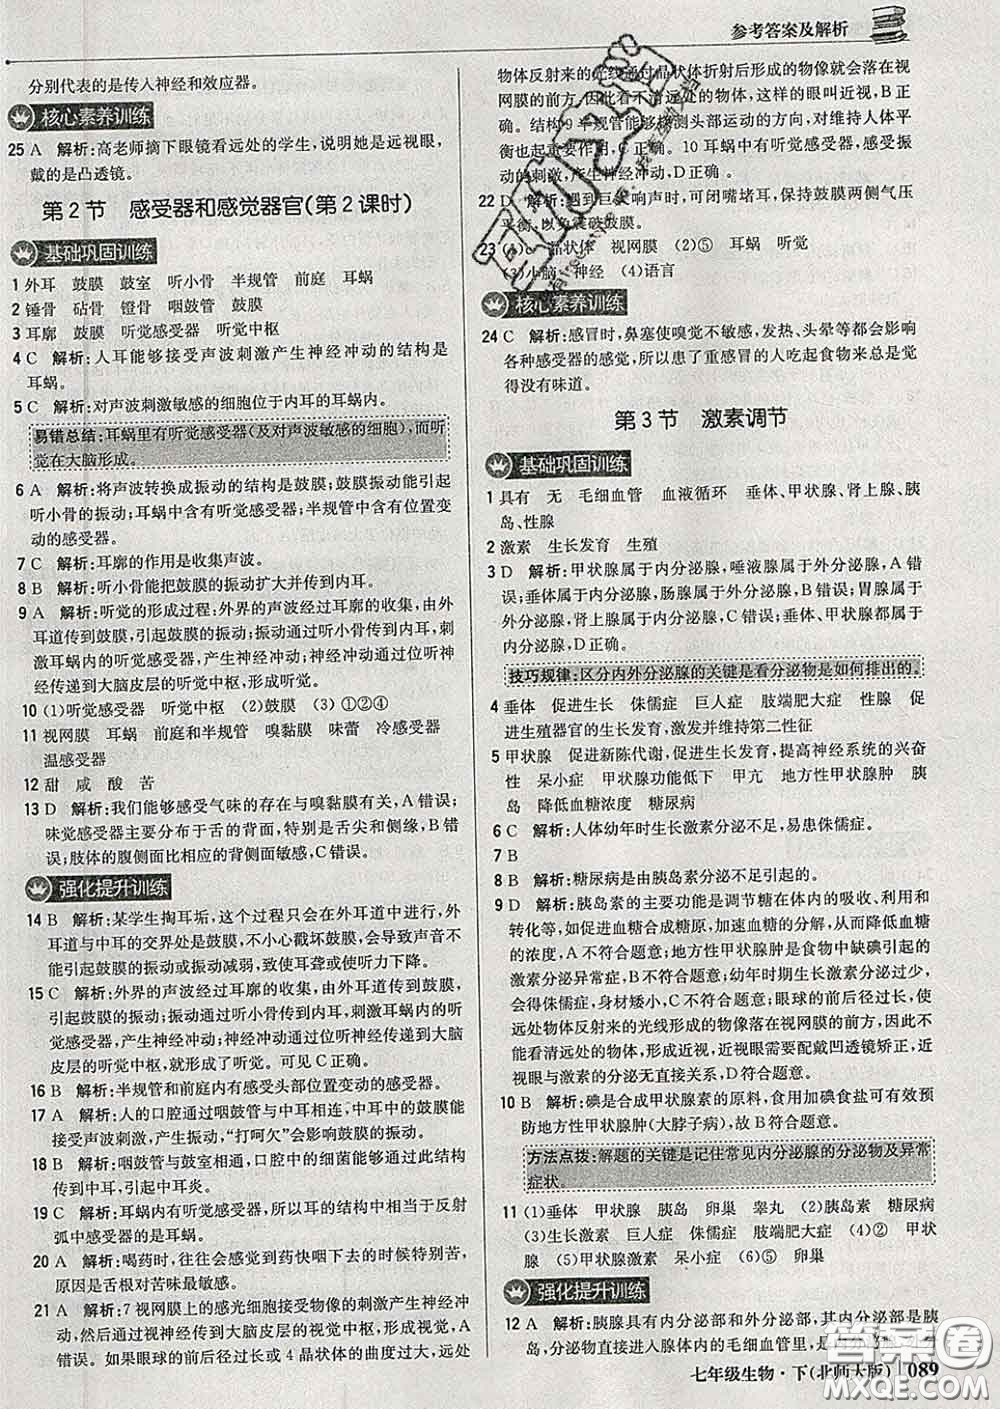 参考答案及解析
分别代表的是传入神经和效应器。
核心素养训练
25 A 解析:高老师摘下眼镜看远处的学生,说明她是远视眼,
戴的是凸透镜。
第2节 感受器和感觉器官(第2课时)
基础巩固训练
1 外耳 鼓膜 鼓室 听小骨 半规管 前庭 耳蜗
2 锤骨 砧骨 镫骨 咽鼓管 鼓膜
3 耳廓 鼓膜 听觉感受器 听觉中枢
4 C 解析:人耳能够接受声波刺激产生神经冲动的结构是
耳蜗。
5 C 解析:对声波刺激敏感的细胞位于内耳的耳蜗内。
易错总结:耳蜗里有听觉感受器(及对声波敏感的细胞),而听
觉在大脑形成。
6 A 解析:将声波转换成振动的结构是鼓膜;鼓膜振动能引起
听小骨的振动;耳蜗中含有听觉感受器;半规管中含有位置变
动的感受器。
7 C 解析:耳廓的作用是收集声波。
8 B 解析:听小骨能把鼓膜的振动扩大并传到内耳。
9 A 解析:听觉的形成过程:外界的声波经过耳廓的收集,由外
耳道传到鼓膜,引起鼓膜的振动;振动通过听小骨传到内耳,刺
激耳蜗内的听觉感受器,产生神经冲动;神经冲动通过听神经
传到大脑皮层的听觉中枢,形成听觉。
10 (1)听觉感受器 听觉中枢 (2)鼓膜 (3)①②④
11 视网膜 耳蜗 前庭和半规管 嗅黏膜 味蕾 冷感受器
温感受器
12 甜 咸 酸 苦
13 D 解析:我们能够感受气味的存在与嗅黏膜有关,A错误;
味觉感受器主要分布于舌的背面,特别是舌尖和侧缘,B错
误;肢体的腹侧面比相应的背侧面敏感,C错误。
强化提升训练
14 B 解析:某学生掏耳垢,这个过程只会在外耳道中进行,外
耳道与中耳的交界处是鼓膜,不小心戳坏鼓膜,会导致声音不
能引起鼓膜的振动或振动减弱,致使耳聋或使听力下降。
15 C 解析:外界的声波经过耳廓的收集,由外耳道传到鼓膜,
引起鼓膜的振动;振动通过听小骨传到内耳,刺激耳蜗内的听
觉感受器,产生神经冲动;神经冲动通过听神经传递到大脑
皮层的听觉中枢,就形成了听觉。可见C正确。
16 B 解析:半规管和前庭内有感受头部位置变动的感受器。
17 A 解析:人的口腔通过咽鼓管与中耳相连,中耳中的鼓膜能
接受声波刺激,产生振动,“打呵欠”会影响鼓膜的振动。
18 B 解析:咽鼓管与鼓室相通,口腔中的细菌能够通过咽鼓管
进入中耳,引起中耳炎。
19 C 解析:耳蜗内有听觉感受器,所以耳的结构中与听觉反射
弧中感受器有关的是耳蜗。
20 A 解析:喝药时,往往会感觉到药快咽下去的时候特别苦,
原因是舌根对苦味最敏感。
21 A 解析:7视网膜上的感光细胞接受物像的刺激产生神经冲
动,然后通过视神经传到大脑皮层的视觉中枢,形成视觉,
A错误。如果眼球的前后径过长或4晶状体的曲度过大,远处
物体反射来的光线通过晶状体折射后形成的物像就会落在视
网膜的前方,因此看不清远处的物体,这样的眼叫近视,B正
确。结构9半规管能够检测头部运动的方向,对维持人体平
衡也起重要作用,C正确。10耳蜗中有听觉感受器,能够接受
的刺激,产生神经冲动,D正确。
22 D 解析:遇到巨大声响时,可闭嘴堵耳,保持鼓膜两侧气压
平衡,以免震破鼓膜。
晶状体 视网膜 (2)⑤ 耳蜗 听觉
(3)小脑 神经 (4)语言
核心素养训练
24 C 解析:感冒时,鼻塞使嗅觉不敏感,发热、头晕等都会影响
各种感受器的感觉,所以患了重感冒的人吃起食物来总是觉
得没有味道。
第3节 激素调节
基础巩固训练
1 具有 无 毛细血管 血液循环 垂体、甲状腺、肾上腺、胰
岛、性腺
2 激素 生长发育 生殖
3 D 解析:甲状腺属于内分泌腺,唾液腺属于外分泌腺,A错
误;垂体属于内分泌腺,肠腺属于外分泌腺,B错误;胃腺属于
外分泌腺,肾上腺属于内分泌腺,C错误;垂体、甲状腺都属于
内分泌腺,D正确。
技巧规律:区分内外分泌腺的关键是看分泌物是如何排出的。
4 垂体 促进生长 侏儒症 巨人症 肢端肥大症 性激素
促进生殖器官的生长发育,激发并维持第二性征
5 甲状腺 促进新陈代谢,促进生长发育,提高神经系统的兴奋
性 呆小症 甲状腺功能低下 甲亢 地方性甲状腺肿 胰
岛 降低血糖浓度 糖尿病
6 C 解析:人体幼年时生长激素分泌不足,易患侏儒症。
7 B
8 B 解析:糖尿病是由胰岛素分泌不足引起的。
9 D 解析:胰岛素的主要功能是调节糖在体内的吸收、利用和
转化等,如促进血糖合成糖原,加速血糖的分解,从而降低血糖
的浓度,A不符合题意;地方性甲状腺肿是食物中缺碘引起的
激素分泌异常症,B不符合题意;幼年时期生长激素分泌过少,
会得侏儒症,身材矮小,C不符合题意;眼球的前后径过长,使
远处物体反射来的光线形成的物像落在视网膜的前方,因此不
能看清远处的物体,形成近视,近视眼需要配戴凹透镜矫正,近
视与激素的分泌无直接关系,D符合题意。
10 B 解析:碘是合成甲状腺素的原料,食用加碘食盐可有效预
防地方性甲状腺肿(大脖子病),故B符合题意。
方法点拨:解题的关键是记住常见内分泌腺的分泌物及异常
症状。
11 (1)垂体 甲状腺 胰岛 卵巢 睾丸 (2)胰岛素 糖尿病
(3)生长激素 巨人症 侏儒症 肢端肥大症 (4)② 甲状
腺 (5)甲状腺激素 呆小症 (6)⑤ 卵巢
强化提升训练
12 A 解析:胰腺具有内分泌部和外分泌部,其内分泌部是胰
岛,分泌物直接进入腺体内的毛细血管里,是
七年级生物·下(北师大版) 089
答案圈
MXQE.COM